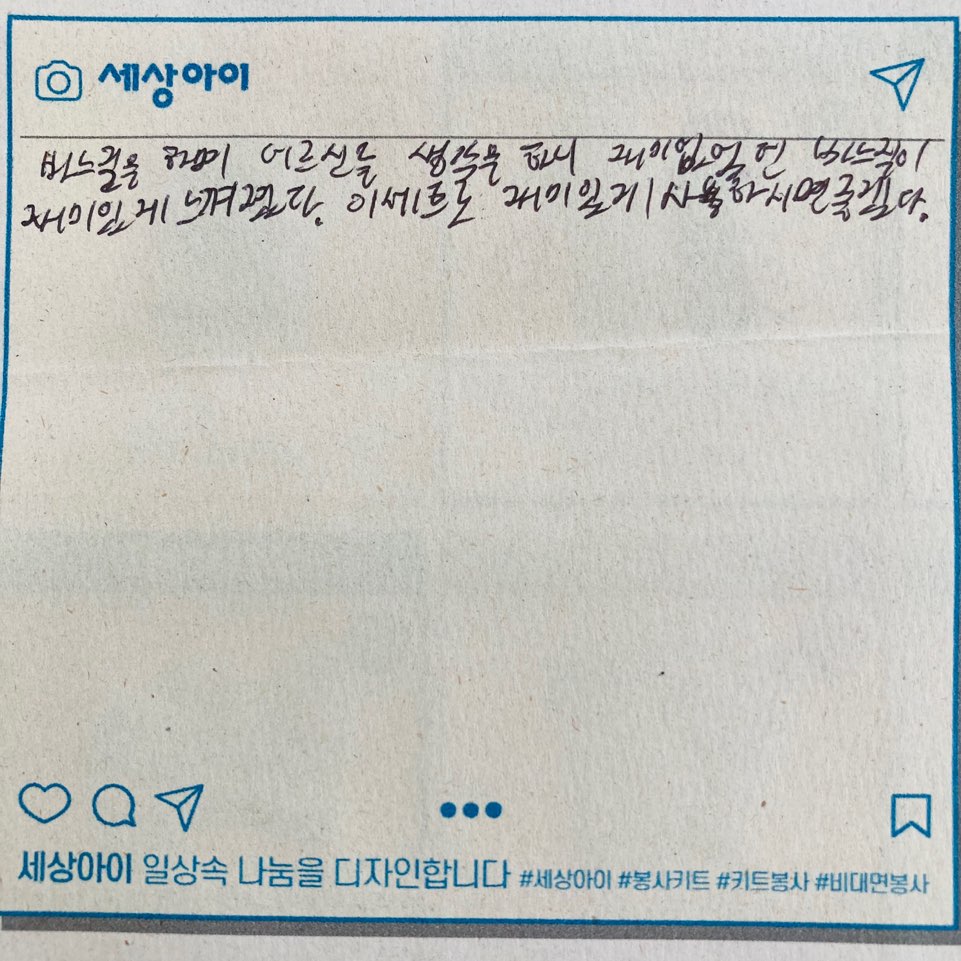 세상아이
바느질을 하며 어르신들 생각을 하니 재미없었던 바느질이
재미있게 느껴졌다. 이세트로 재미있게 사용하시면 좋겠다.
세상아이 일상속 나눔을 디자인합니다 #세상아이 #봉사키트 #키트봉사 #비대면봉사